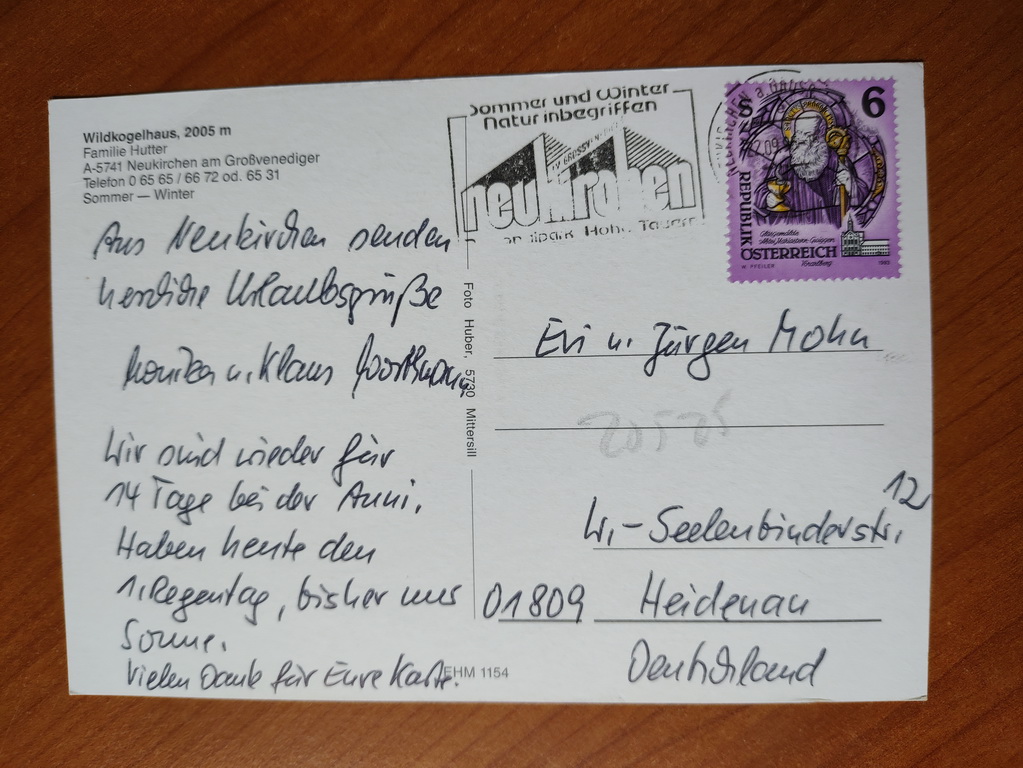 Wildkogelhaus, 2005 m
Familie Hutter
A-5741 Neukirchen am Großvenediger
Telefon 0 65 65 / 66 72 od. 65 31
Sommer — Winter
Aus Neukirchen senden
herzliche Urlaubsgrüße
Monika u. Klaus
Wir sind wieder für
14 Tage bei der Anni.
Haben heute den
1. Regentag, bisher nur
Sonne.
Vielen Dank für Eure Karte.
EHM 1154
Foto Huber, 5730 Mittersill
Sommer und Winter
Natur inbegriffen
neukirchen
Hohe Tauern
S 6
REPUBLIK
ÖSTERREICH
Glasgemälde
Vorarlberg
W. PFEILER 1993
Evi u. Jürgen Mohn
W.-Seelenbinderstr.
12
01809 Heidenau
Deutschland